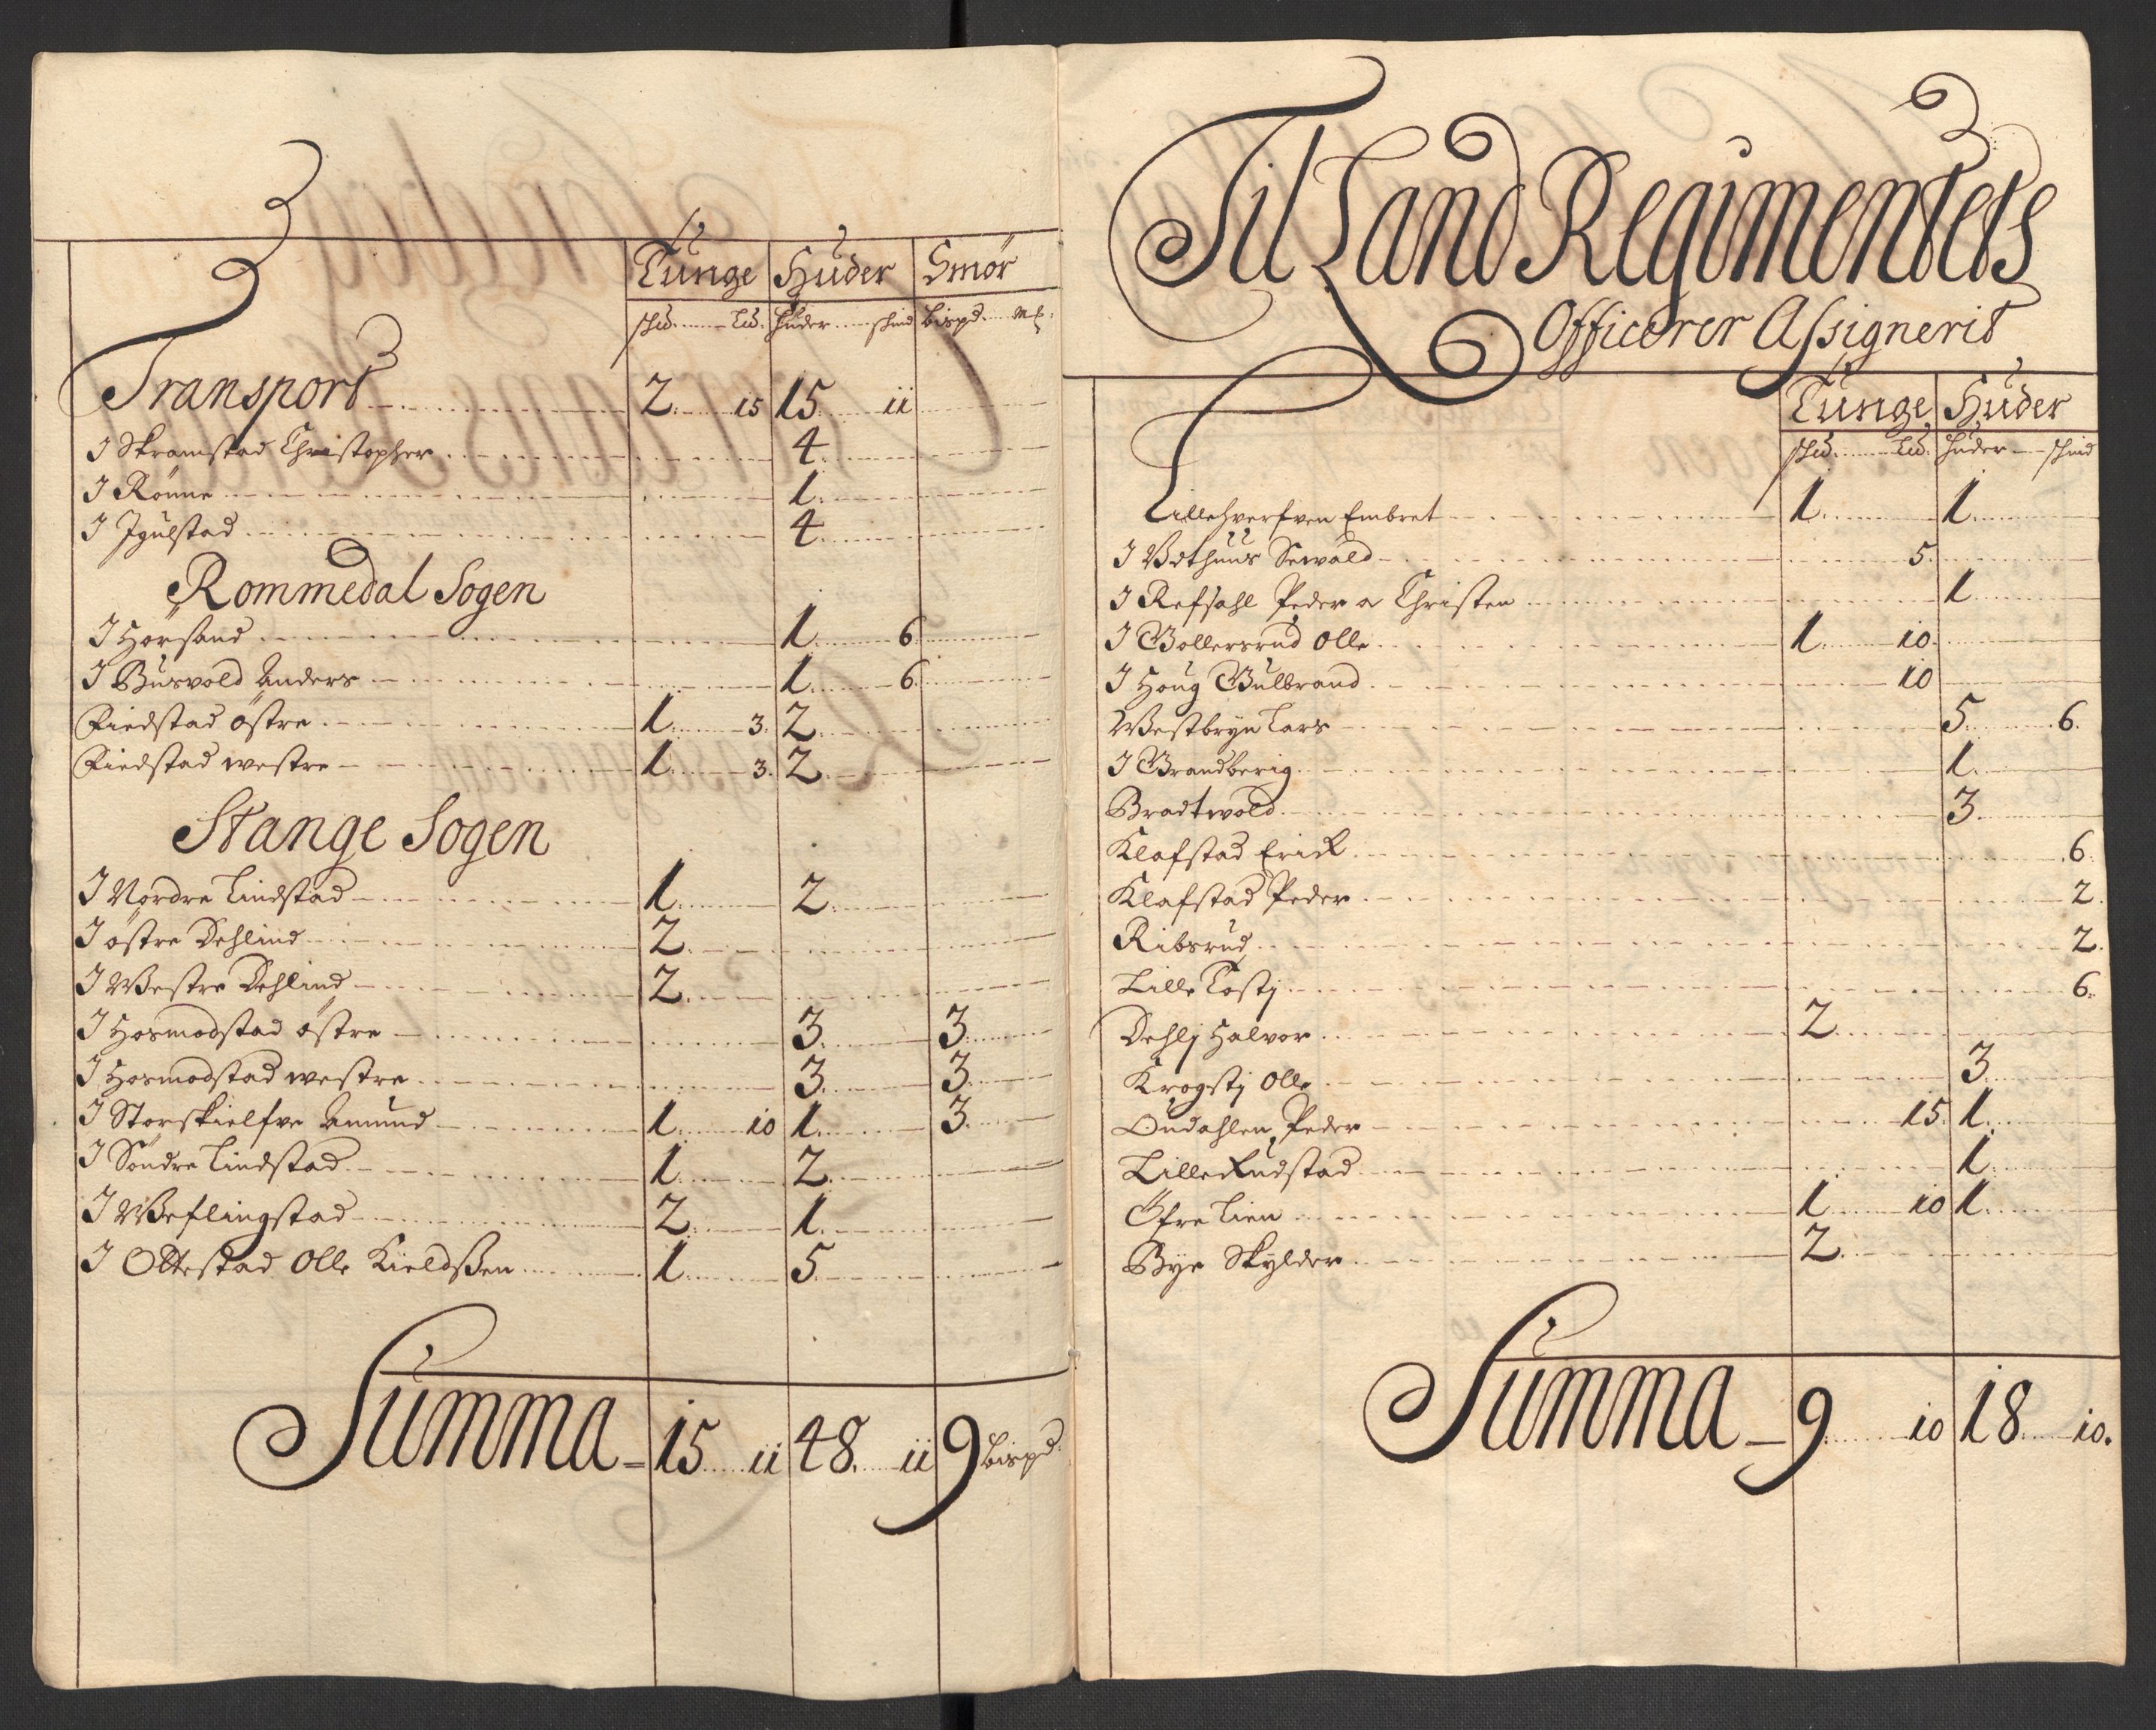 Tunge Huder Smör
shℓd. Lℓd. Huder skind Bispd. Mk:
Transport 2. 15 15 11
J Skramstad Christopher 4.
J Rönne 1.
J Igulstad 4
Rommedal Sogen
J Hörsand 1. 6.
J Busvold Anders 1. 6.
Fiedstad östre 1. 3. 2.
Fiedstad westre 1. 3. 2.
Stange Sogen
J Nordre Lindstad 1. 2.
J östre Dehlind 2.
J Westre Dehlind 2.
J Hosmodstad östre 3. 3.
J Hosmodstad westre 3. 3.
J Storskielfve Amund 1. 10 1. 3.
J Söndre Lindstad 1. 2.
J Weflingstad 2. 1.
J Ottestad Olle Kieldßen 1. 5.
Summa 15. 11 48. 11 9 Bispd:
Til Land Regimentets
Officerer Assignerit
Tunge Huder
shℓd. Lℓd. Huder skind
Lillehverfven Embret 1. 1.
J Vdthuus Sewald 5.
J Refsahl Peder a Christen 1.
J Gollersrud Olle 1. 10.
J Houg Gulbrand 10
Westbryn Lars 5. 6.
J Brandberig 1.
Bradtwold 3.
Klafstad Erick 6.
Klafstad Peder 2.
Ribsrud 2.
Lille Tostj 6.
Dehlj Halvor 2.
Krogstj Olle 3.
Oudahlen Peder 15. 1.
Lille Rudstad 1.
Öfre Lien 1. 10 1.
Bye Skylder 2.
Summa 9. 10 18. 10.